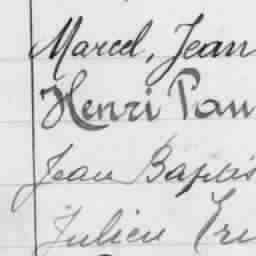 Marcel, Jean
Henri Pau
Jean Baptis
Julien